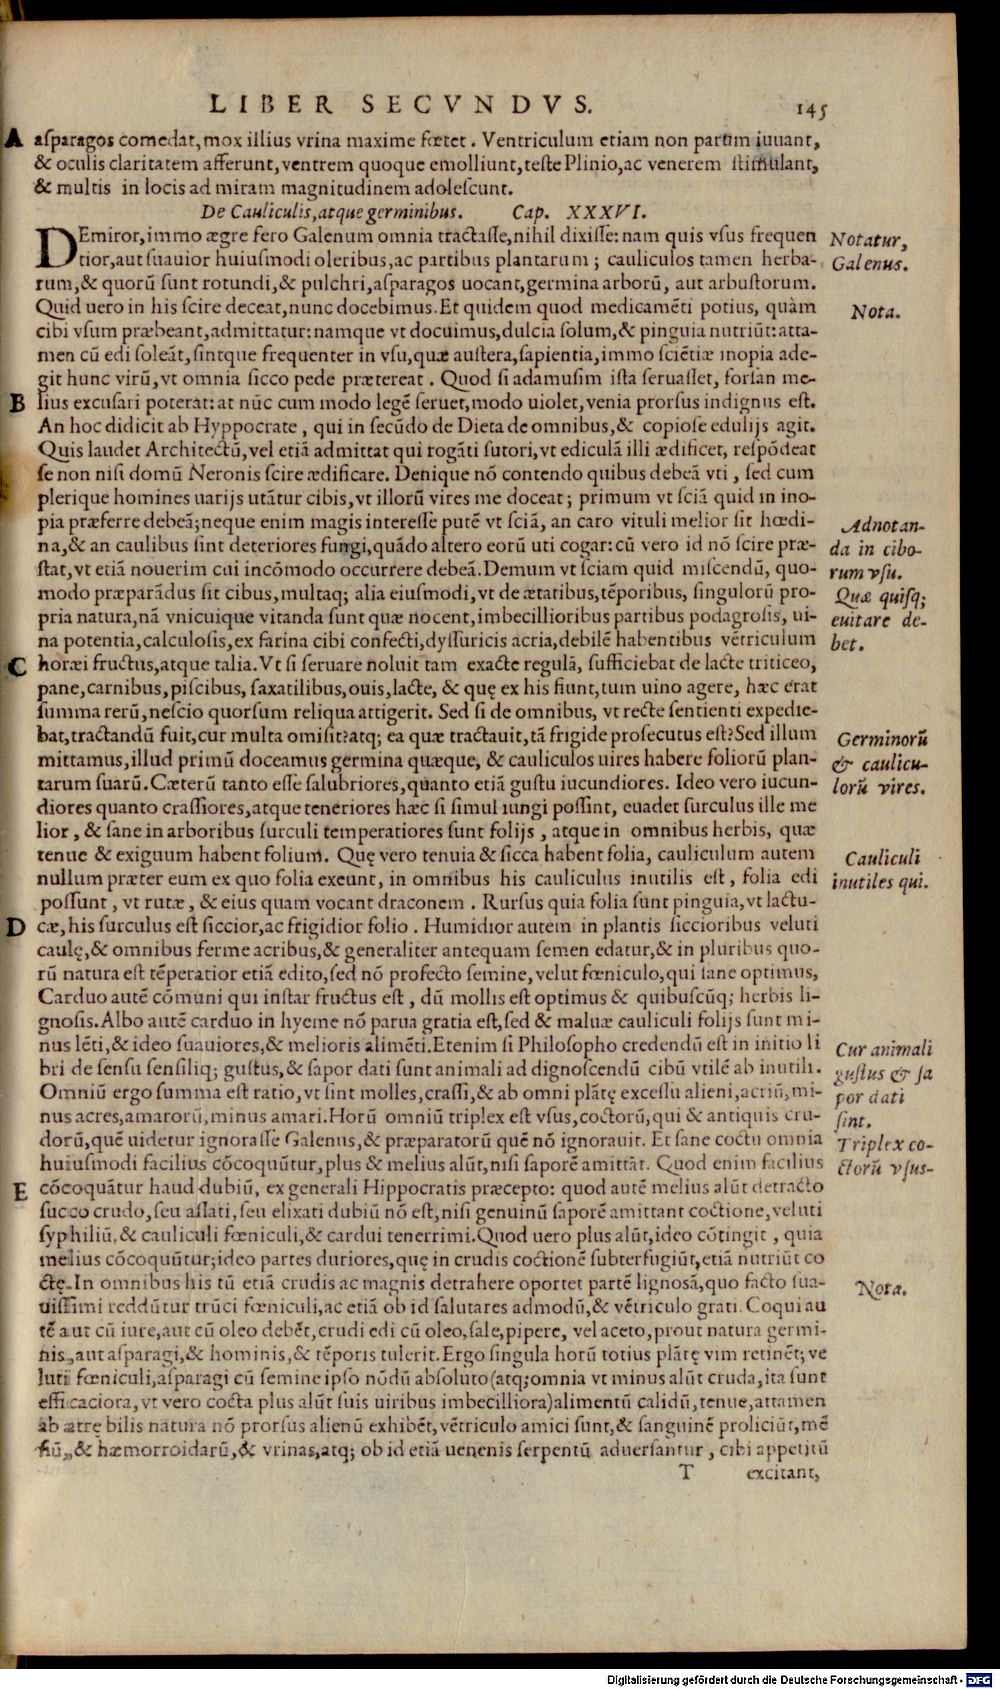 LIBER SECVNDVS. 145
A asparagos comedat, mox illius vrina maxime fœtet. Ventriculum etiam non parum iuuant,
& oculis claritatem afferunt, ventrem quoque emolliunt, teste Plinio, ac venerem stimulant,
& multis in locis ad miram magnitudinem adolescunt.
De Cauliculis, atque germinibus. Cap. XXXVI.
DEmiror, immo ægre fero Galenum omnia tractasse, nihil dixisse: nam quis vsus frequen
tior, aut suauior huiusmodi oleribus, ac partibus plantarum; cauliculos tamen herba-
rum, & quorū sunt rotundi, & pulchri, asparagos uocant, germina arborū, aut arbustorum.
Quid uero in his scire deceat, nunc docebimus. Et quidem quod medicamēti potius, quàm
cibi vsum præbeant, admittatur: namque vt docuimus, dulcia solum, & pinguia nutriūt: atta-
men cū edi soleāt, sintque frequenter in vsu, quæ austera, sapientia, immo sciētiæ inopia ade-
git hunc virū, vt omnia sicco pede prætereat. Quod si adamusim ista seruasset, forsan me-
B lius excusari poterat: at nūc cum modo legē seruet, modo uiolet, venia prorsus indignus est.
An hoc didicit ab Hyppocrate, qui in secūdo de Dieta de omnibus, & copiose edulijs agit.
Quis laudet Architectū, vel etiā admittat qui rogāti sutori, vt ediculā illi ædificet, respōdeat
se non nisi domū Neronis scire ædificare. Denique nō contendo quibus debeā vti, sed cum
plerique homines uarijs utātur cibis, vt illorū vires me doceat; primum vt sciā quid in ino-
pia præferre debeā; neque enim magis interesse putē vt sciā, an caro vituli melior sit hœdi-
na, & an caulibus sint deteriores fungi, quādo altero eorū uti cogar: cū vero id nō scire præ-
stat, vt etiā nouerim cui incōmodo occurrere debeā. Demum vt sciam quid miscendū, quo-
modo præparādus sit cibus, multaq; alia eiusmodi, vt de ætatibus, tēporibus, singulorū pro-
pria natura, nā vnicuique vitanda sunt quæ nocent, imbecillioribus partibus podagrosis, ui-
na potentia, calculosis, ex farina cibi confecti, dyssuricis acria, debilē habentibus vētriculum
C horæi fructus, atque talia. Vt si seruare noluit tam exacte regulā, sufficiebat de lacte triticeo,
pane, carnibus, piscibus, saxatilibus, ouis, lacte, & quę ex his fiunt, tum uino agere, hæc erat
summa rerū, nescio quorsum reliqua attigerit. Sed si de omnibus, vt recte sentienti expedie-
bat, tractandū fuit, cur multa omisit? atq; ea quæ tractauit, tā frigide prosecutus est? Sed illum
mittamus, illud primū doceamus germina quæque, & cauliculos uires habere foliorū plan-
tarum suarū. Cæterū tanto esse salubriores, quanto etiā gustu iucundiores. Ideo vero iucun-
diores quanto crassiores, atque teneriores hæc si simul iungi possint, euadet surculus ille me
lior, & sane in arboribus surculi temperatiores sunt folijs, atque in omnibus herbis, quæ
tenue & exiguum habent folium. Quę vero tenuia & sicca habent folia, cauliculum autem
nullum præter eum ex quo folia exeunt, in omnibus his cauliculus inutilis est, folia edi
possunt, vt rutæ, & eius quam vocant draconem. Rursus quia folia sunt pinguia, vt lactu-
D cæ, his surculus est siccior, ac frigidior folio. Humidior autem in plantis siccioribus veluti
caulę, & omnibus ferme acribus, & generaliter antequam semen edatur, & in pluribus quo-
rū natura est tēperatior etiā edito, sed nō profecto semine, velut fœniculo, qui sane optimus,
Carduo autē cōmuni qui instar fructus est, dū mollis est optimus & quibuscūq; herbis li-
gnosis. Albo autē carduo in hyeme nō parua gratia est, sed & maluæ cauliculi folijs sunt mi-
nus lēti, & ideo suauiores, & melioris alimēti. Etenim si Philosopho credendū est in initio li
bri de sensu sensiliq; gustus, & sapor dati sunt animali ad dignoscendū cibū vtilē ab inutili.
Omniū ergo summa est ratio, vt sint molles, crassi, & ab omni plātę excessu alieni, acriū, mi-
nus acres, amarorū, minus amari. Horū omniū triplex est vsus, coctorū, qui & antiquis cru-
dorū, quē uidetur ignorasse Galenus, & præparatorū quē nō ignorauit. Et sane coctū omnia
huiusmodi facilius cōcoquūtur, plus & melius alūt, nisi saporē amittāt. Quod enim facilius
E cōcoquātur haud dubiū, ex generali Hippocratis præcepto: quod autē melius alūt detracto
succo crudo, seu assati, seu elixati dubiū nō est, nisi genuinū saporē amittant coctione, veluti
syphiliū, & cauliculi fœniculi, & cardui tenerrimi. Quod uero plus alūt, ideo cōtingit, quia
melius cōcoquūtur; ideo partes duriores, quę in crudis coctionē subterfugiūt, etiā nutriūt co
ctę. In omnibus his tū etiā crudis ac magnis detrahere oportet partē lignosā, quo facto sua-
uissimi reddūtur trūci fœniculi, ac etiā ob id salutares admodū, & vētriculo grati. Coqui au
tē aut cū iure, aut cū oleo debēt, crudi edi cū oleo, sale, pipere, vel aceto, prout natura germi-
nis, aut asparagi, & hominis, & tēporis tulerit. Ergo singula horū totius plātę vim retinēt; ve
luti fœniculi, asparagi cū semine ipso nōdū absoluto (atq; omnia vt minus alūt cruda, ita sunt
efficaciora, vt vero cocta plus alūt suis uiribus imbecilliora) alimentū calidū, tenue, attamen
ab atrę bilis natura nō prorsus alienū exhibēt, vētriculo amici sunt, & sanguinē proliciūt, mē
siū, & hæmorroidarū, & vrinas, atq; ob id etiā uenenis serpentū aduersantur, cibi appetitū
T excitant,
Notatur,
Galenus.
Nota.
Adnotan-
da in cibo-
rum vsu.
Quæ quisq;
euitare de-
bet.
Germinorū
& caulicu-
lorū vires.
Cauliculi
inutiles qui.
Cur animali
gustus & sa
por dati
sint.
Triplex co-
ctorū vsus-
Nota.
Digitalisierung gefördert durch die Deutsche Forschungsgemeinschaft - DFG